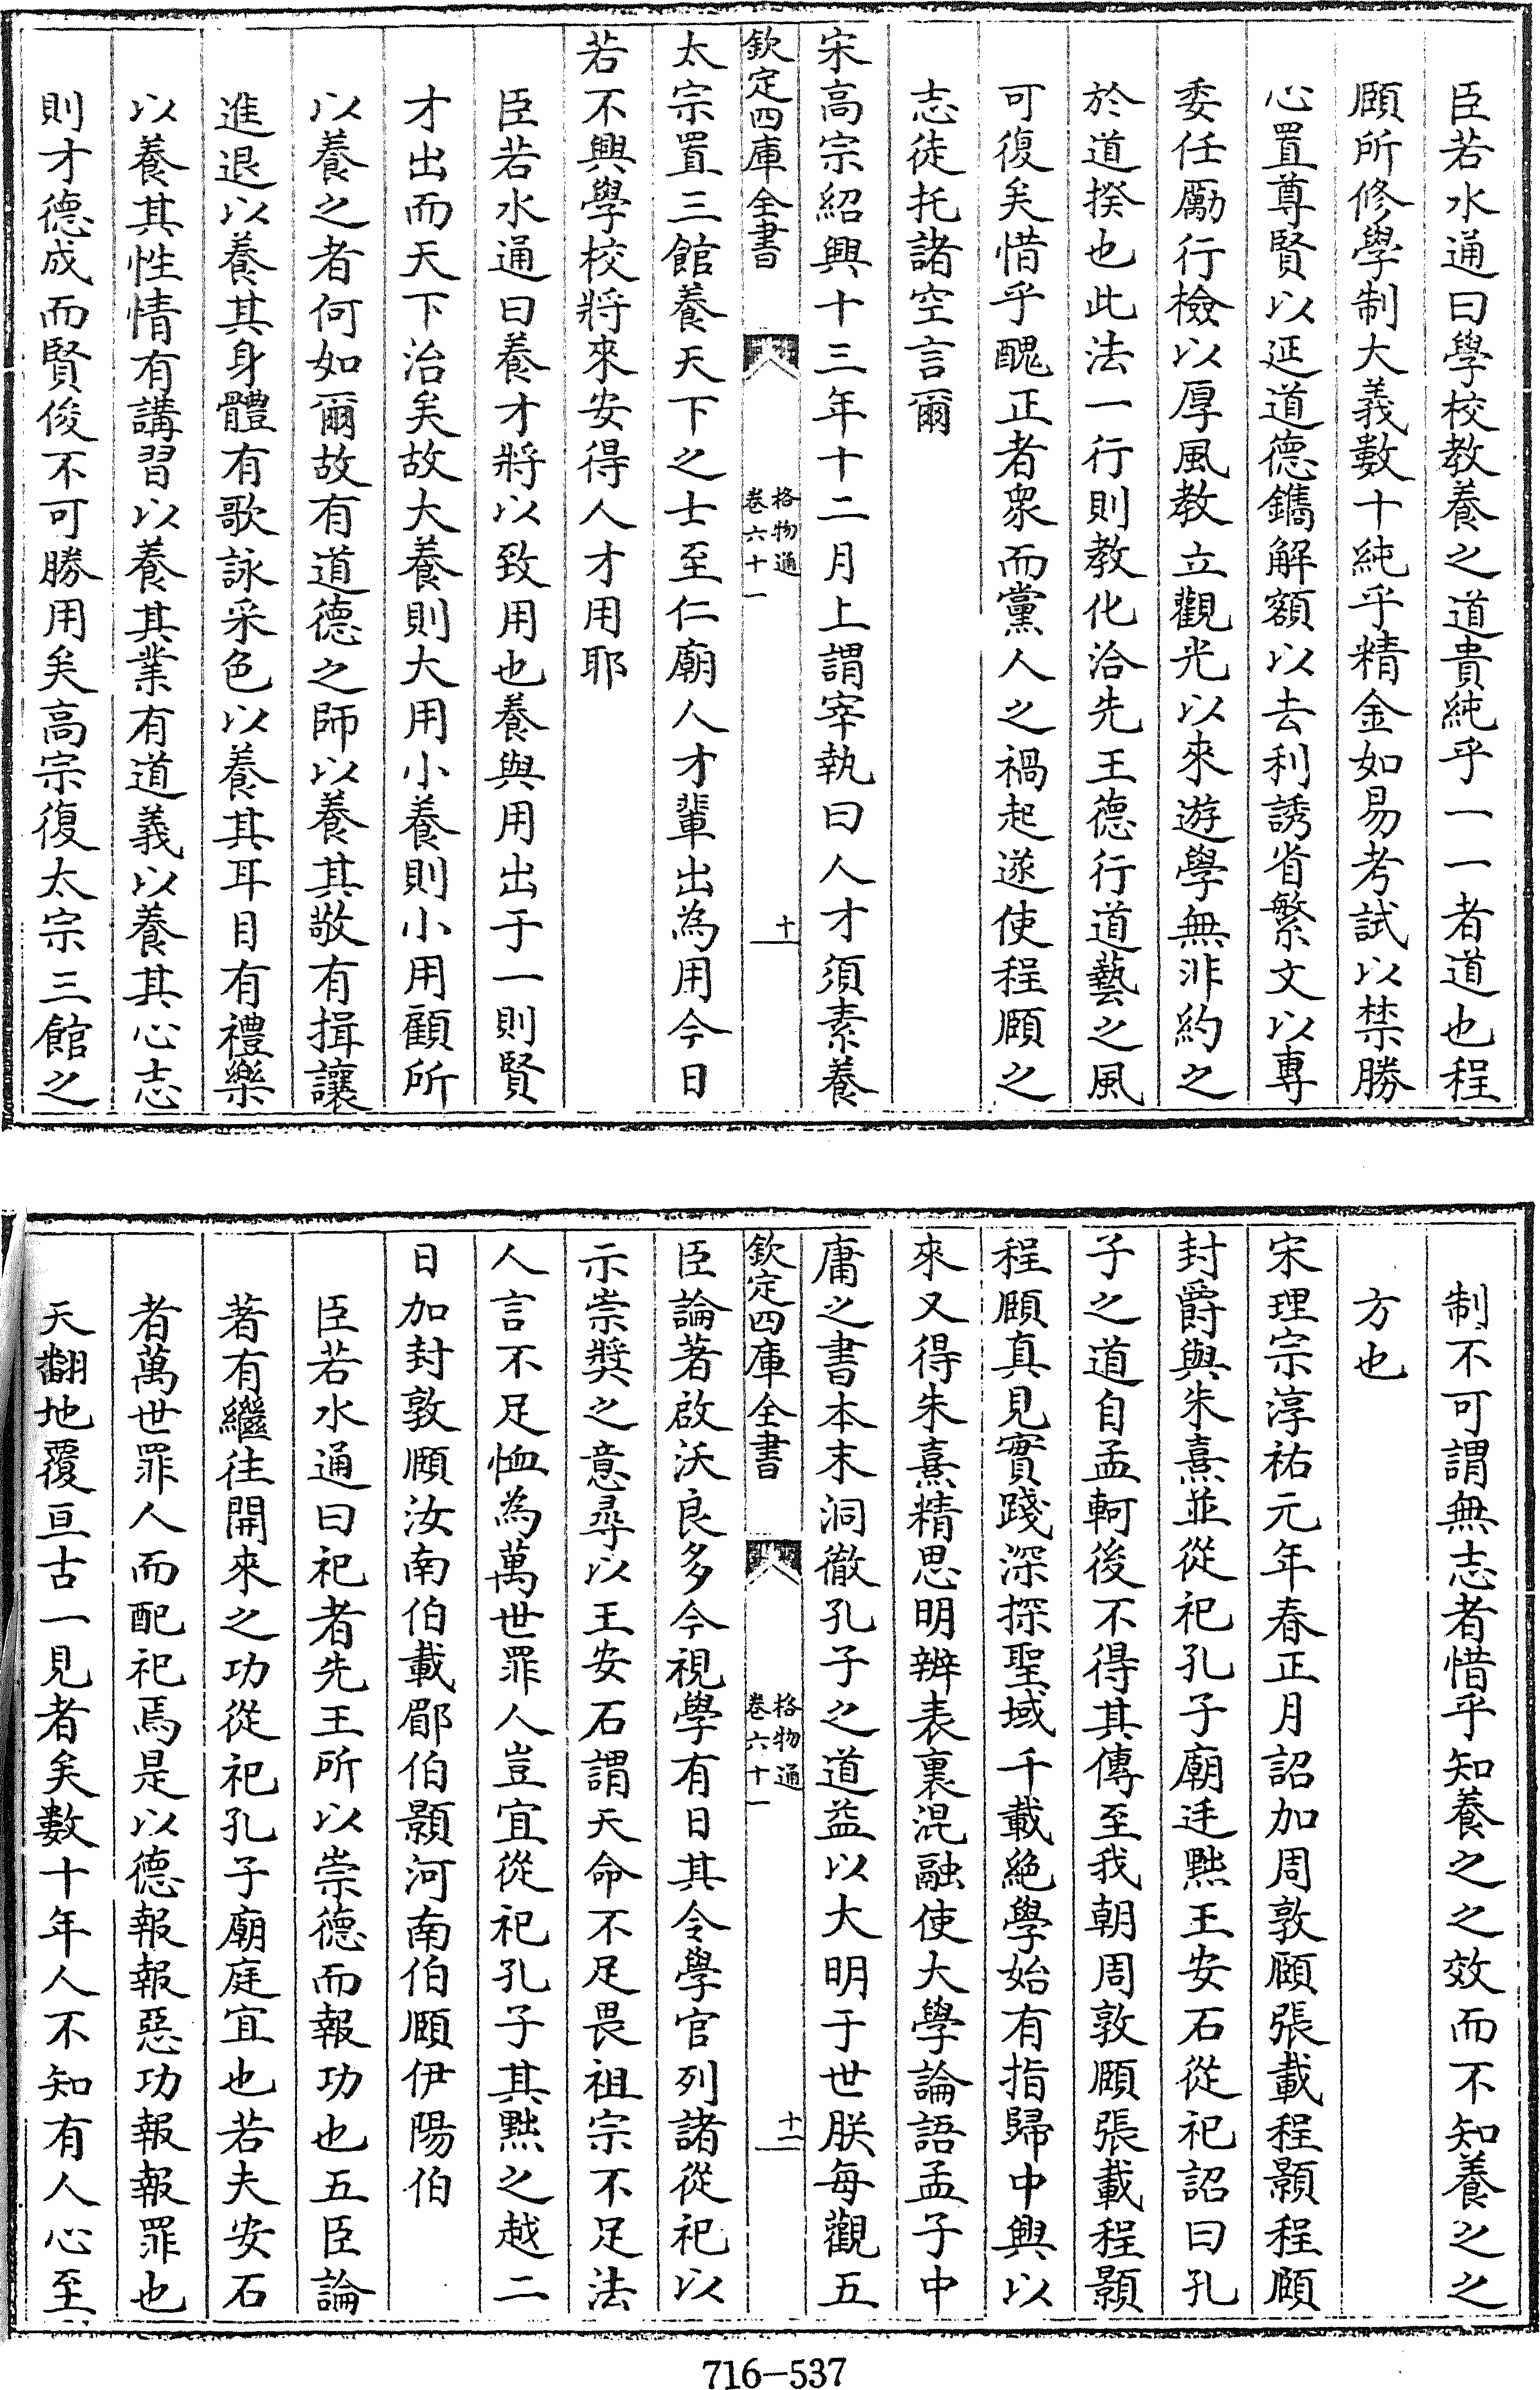 臣若水通曰學校教養之道貴純乎一一者道也程
頤所修學制大義數十純乎精金如易考試以禁勝
心置尊賢以延道德鐫解額以去利誘省繁文以專
委任勵行檢以厚風教立觀光以來遊學無非約之
於道揆也此法一行則教化洽先王德行道藝之風
可復矣惜乎醜正者衆而黨人之禍起遂使程頤之
志徒托諸空言爾
宋高宗紹興十三年十二月上謂宰執曰人才須素養
欽定四庫全書 格物通 卷六十一 十一
太宗置三館養天下之士至仁廟人才輩出為用今日
若不興學校將來安得人才用耶
臣若水通曰養才將以致用也養與用出于一則賢
才出而天下治矣故大養則大用小養則小用顧所
以養之者何如爾故有道德之師以養其敬有揖讓
進退以養其身體有歌詠采色以養其耳目有禮樂
以養其性情有講習以養其業有道義以養其心志
則才德成而賢俊不可勝用矣高宗復太宗三館之
制不可謂無志者惜乎知養之之效而不知養之之
方也
宋理宗淳祐元年春正月詔加周敦頤張載程顥程頤
封爵與朱熹並從祀孔子廟廷黜王安石從祀詔曰孔
子之道自孟軻後不得其傳至我朝周敦頤張載程顥
程頤真見實踐深探聖域千載絕學始有指歸中興以
來又得朱熹精思明辨表裏混融使大學論語孟子中
庸之書本末洞徹孔子之道益以大明于世朕每觀五
欽定四庫全書 格物通 卷六十一 十二
臣論著啟沃良多今視學有日其令學官列諸從祀以
示崇獎之意尋以王安石謂天命不足畏祖宗不足法
人言不足恤為萬世罪人豈宜從祀孔子其黜之越二
日加封敦頤汝南伯載郿伯顥河南伯頤伊陽伯
臣若水通曰祀者先王所以崇德而報功也五臣論
著有繼往開來之功從祀孔子廟庭宜也若夫安石
者萬世罪人而配祀焉是以德報報惡功報報罪也
天翻地覆亘古一見者矣數十年人不知有人心至
716-537